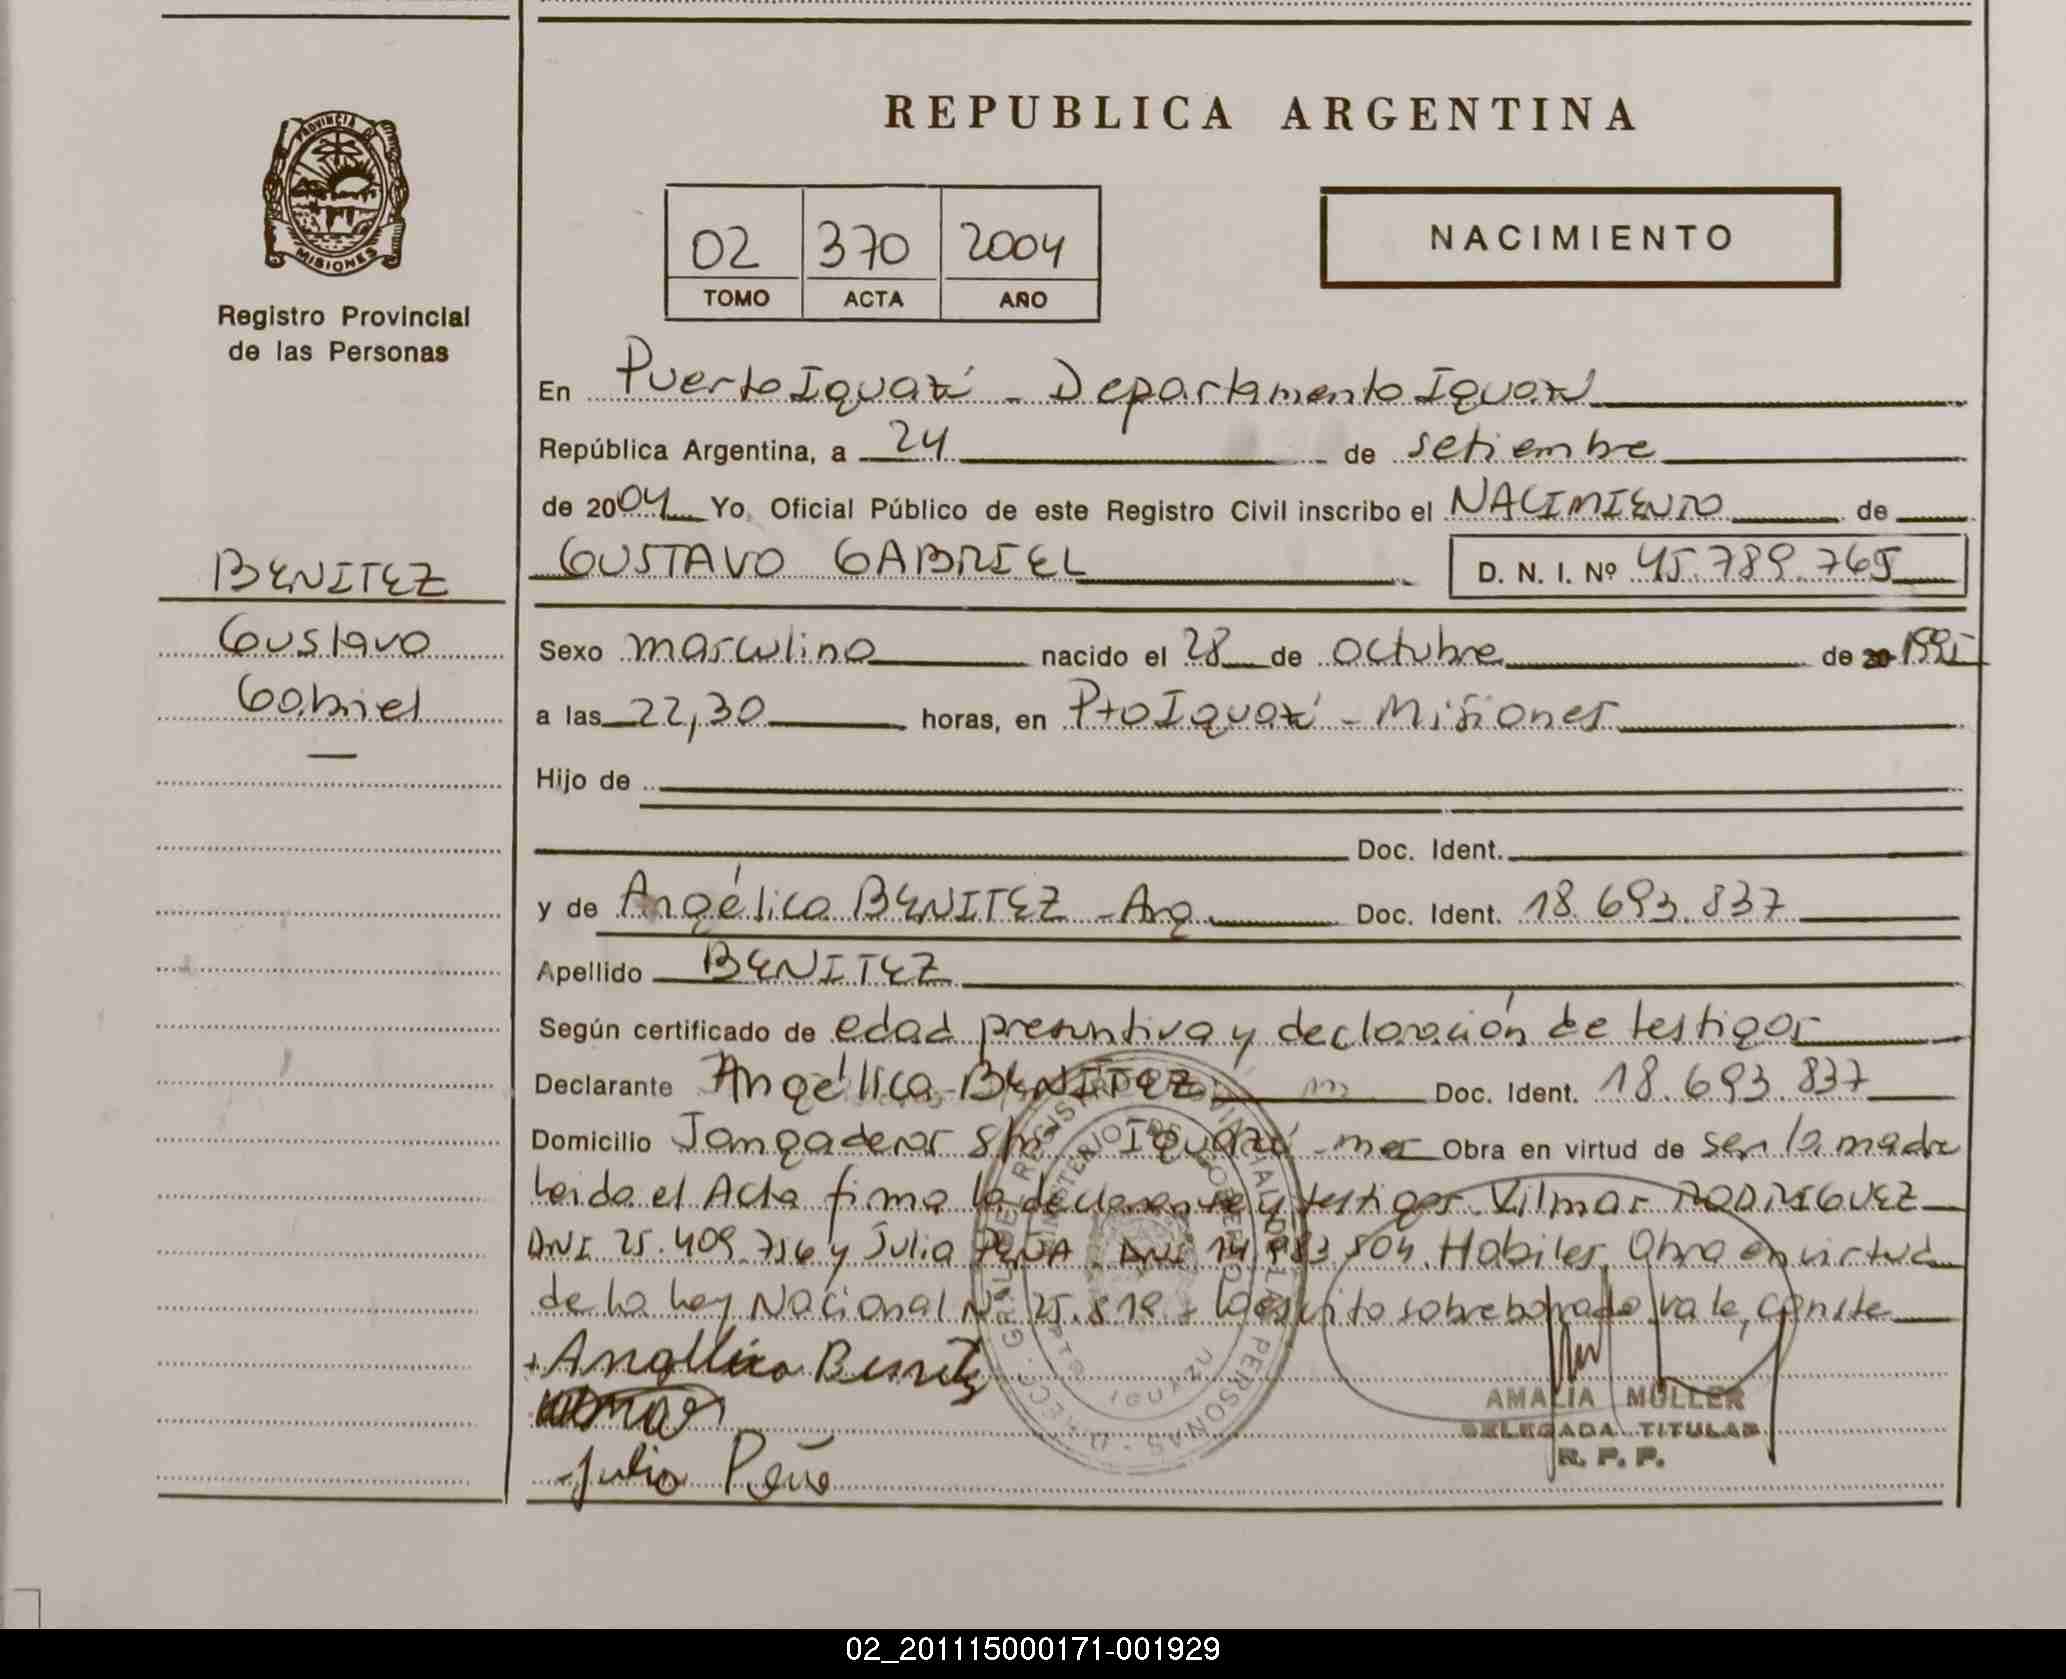 REPUBLICA ARGENTINA
PROVINCIA D MISIONES
Registro Provincial
de las Personas
02 370 2004
TOMO ACTA AÑO
NACIMIENTO
En Puerto Iguazú - Departamento Iguazú
República Argentina, a 24 de setiembre
de 2004 Yo, Oficial Público de este Registro Civil inscribo el NACIMIENTO de
BENITEZ
Gustavo
Gabriel
GUSTAVO GABRIEL D. N. I. Nº 45.789.765
Sexo masculino nacido el 28 de octubre de 20 1995
a las 22,30 horas, en Pto Iguazú - Misiones
Hijo de
Doc. Ident.
y de Angélica BENITEZ - Arg Doc. Ident. 18.693.837
Apellido BENITEZ
Según certificado de edad presuntiva y declaración de testigos
Declarante Angélica BENITEZ Doc. Ident. 18.693.837
Domicilio Jangaderos s/n Iguazú - mes Obra en virtud de ser la madre
Leida el Acta firma la declarante y testigos Vilmar RODRIGUEZ
DNI 25.409.756 y Julia PEÑA DNI 14.983.504. Habiles. Obra en virtud
de la Ley Nacional Nº 25.819 - Lo escrito sobreborrado vale, conste
Angelica Benitez
Julia Peña
AMALIA MÜLLER
DELEGADA TITULAR
R. P. P.
02_201115000171-001929